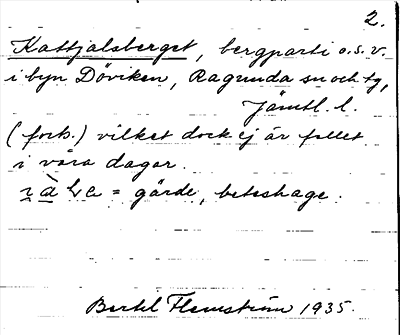 2.
Kattjalsberget, bergparti o.s.v.
i byn Döviken, Ragunda sn och tg,
Jämtl. l.
(forts.) vilket dock ej är fallet
i våra dagar.
= gärde, beteshage.
Bertil Flemström 1935.